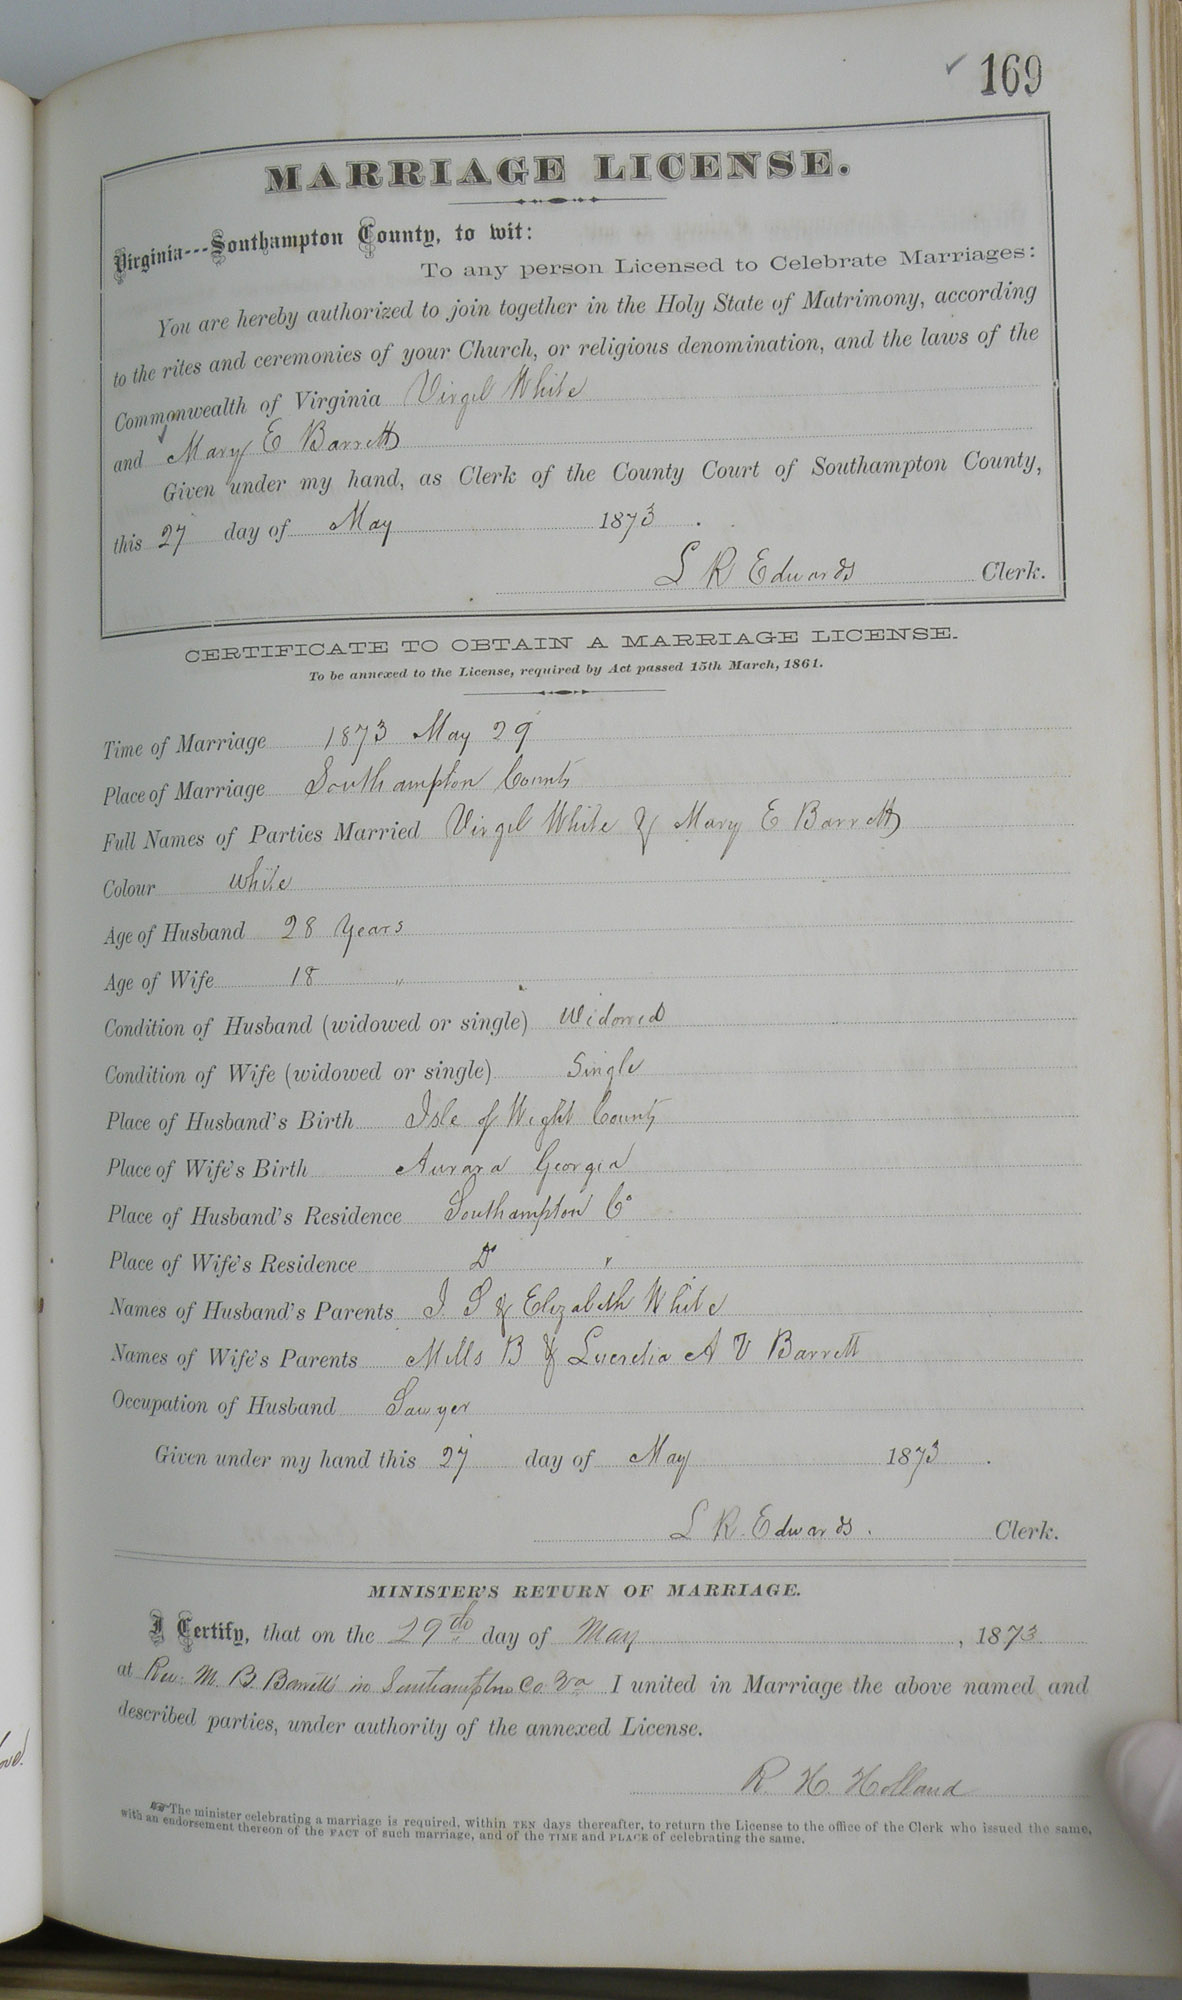 ✓ 169
MARRIAGE LICENSE.
Virginia---Southampton County, to wit:
To any person Licensed to Celebrate Marriages:
You are hereby authorized to join together in the Holy State of Matrimony, according
to the rites and ceremonies of your Church, or religious denomination, and the laws of the
Commonwealth of Virginia Virgil White
and Mary E Barrett
Given under my hand, as Clerk of the County Court of Southampton County,
this 27 day of May 1873.
L R Edwards Clerk.
CERTIFICATE TO OBTAIN A MARRIAGE LICENSE.
To be annexed to the License, required by Act passed 15th March, 1861.
Time of Marriage 1873 May 29
Place of Marriage Southampton County
Full Names of Parties Married Virgil White & Mary E Barrett
Colour White
Age of Husband 28 Years
Age of Wife 18 "
Condition of Husband (widowed or single) Widowed
Condition of Wife (widowed or single) Single
Place of Husband's Birth Isle of Wight County
Place of Wife's Birth Aurara Georgia
Place of Husband's Residence Southampton Co
Place of Wife's Residence Do "
Names of Husband's Parents J. S & Elizabeth White
Names of Wife's Parents Mills B & Lucretia A V Barrett
Occupation of Husband Sawyer
Given under my hand this 27 day of May 1873.
L R. Edwards. Clerk.
MINISTER'S RETURN OF MARRIAGE.
I Certify, that on the 29th day of May, 1873
at Rev. M B Barretts in Southampton Co Va I united in Marriage the above named and
described parties, under authority of the annexed License.
R. H. Holland
The minister celebrating a marriage is required, within TEN days thereafter, to return the License to the office of the Clerk who issued the same,
with an endorsement thereon of the FACT of such marriage, and of the TIME and PLACE of celebrating the same.